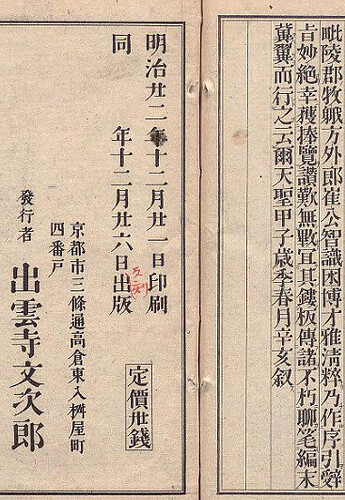 毗陵郡牧鉞方外郎崔公智識困博才雅淸粹乃作序引辭
旨妙絶幸獲捧覽讃歎無斁宜其鏤板傳諸不朽聊笔編末
冀翼而行之云爾天聖甲子歳季春月辛亥叙
明治廿二年十二月廿一日印刷
同 年十二月廿六日出版
定價卅錢
京都市三條通高倉東入桝屋町
四番戸
發行者 出雲寺文次郎